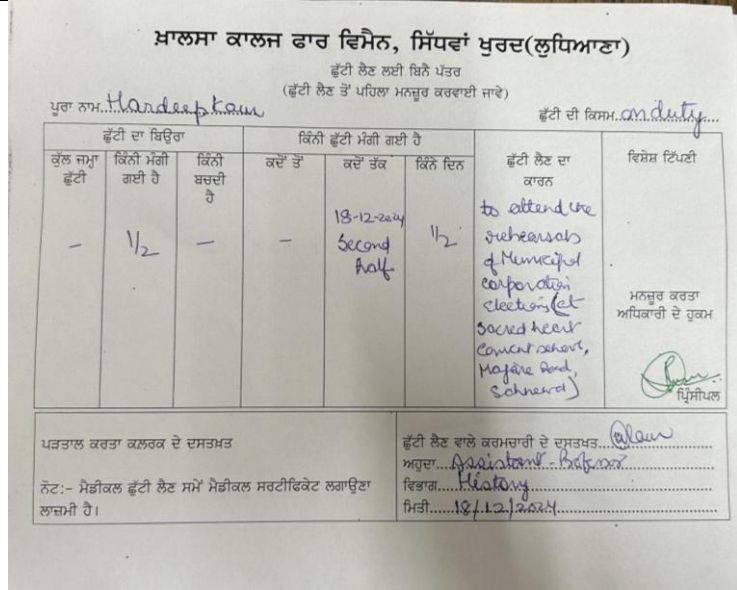 ਖ਼ਾਲਸਾ ਕਾਲਜ ਫਾਰ ਵਿਮੈਨ, ਸਿੱਧਵਾਂ ਖੁਰਦ(ਲੁਧਿਆਣਾ)
ਛੁੱਟੀ ਲੈਣ ਲਈ ਬਿਨੈ ਪੱਤਰ
(ਛੁੱਟੀ ਲੈਣ ਤੋਂ ਪਹਿਲਾ ਮਨਜ਼ੂਰ ਕਰਵਾਈ ਜਾਵੇ)
ਪੂਰਾ ਨਾਮ...Hardeep Kaur
ਛੁੱਟੀ ਦੀ ਕਿਸਮ...on duty...
ਛੁੱਟੀ ਦਾ ਬਿਉਰਾ
ਕਿੰਨੀ ਛੁੱਟੀ ਮੰਗੀ ਗਈ ਹੈ
ਕੁੱਲ ਜਮ੍ਹਾ
ਛੁੱਟੀ
ਕਿੰਨੀ ਮੰਗੀ
ਗਈ ਹੈ
ਕਿੰਨੀ
ਬਚਦੀ
ਹੈ
ਕਦੋਂ ਤੋਂ
ਕਦੋਂ ਤੱਕ
ਕਿੰਨੇ ਦਿਨ
ਛੁੱਟੀ ਲੈਣ ਦਾ
ਕਾਰਨ
ਵਿਸ਼ੇਸ਼ ਟਿੱਪਣੀ
–
1/2
–
–
18-12-2024
Second
half
1/2
to attend the
rehearsals
of Municipal
corporation
elections (at
Sacred heart
convent school,
Road,
ਮਨਜ਼ੂਰ ਕਰਤਾ
ਅਧਿਕਾਰੀ ਦੇ ਹੁਕਮ
ਪ੍ਰਿੰਸੀਪਲ
ਪੜਤਾਲ ਕਰਤਾ ਕਲਰਕ ਦੇ ਦਸਤਖ਼ਤ
ਨੋਟ:- ਮੈਡੀਕਲ ਛੁੱਟੀ ਲੈਣ ਸਮੇਂ ਮੈਡੀਕਲ ਸਰਟੀਫਿਕੇਟ ਲਗਾਉਣਾ
ਲਾਜ਼ਮੀ ਹੈ।
ਛੁੱਟੀ ਲੈਣ ਵਾਲੇ ਕਰਮਚਾਰੀ ਦੇ ਦਸਤਖਤ...
ਅਹੁਦਾ...Assistant-
ਵਿਭਾਗ...History
ਮਿਤੀ...18/12/2024